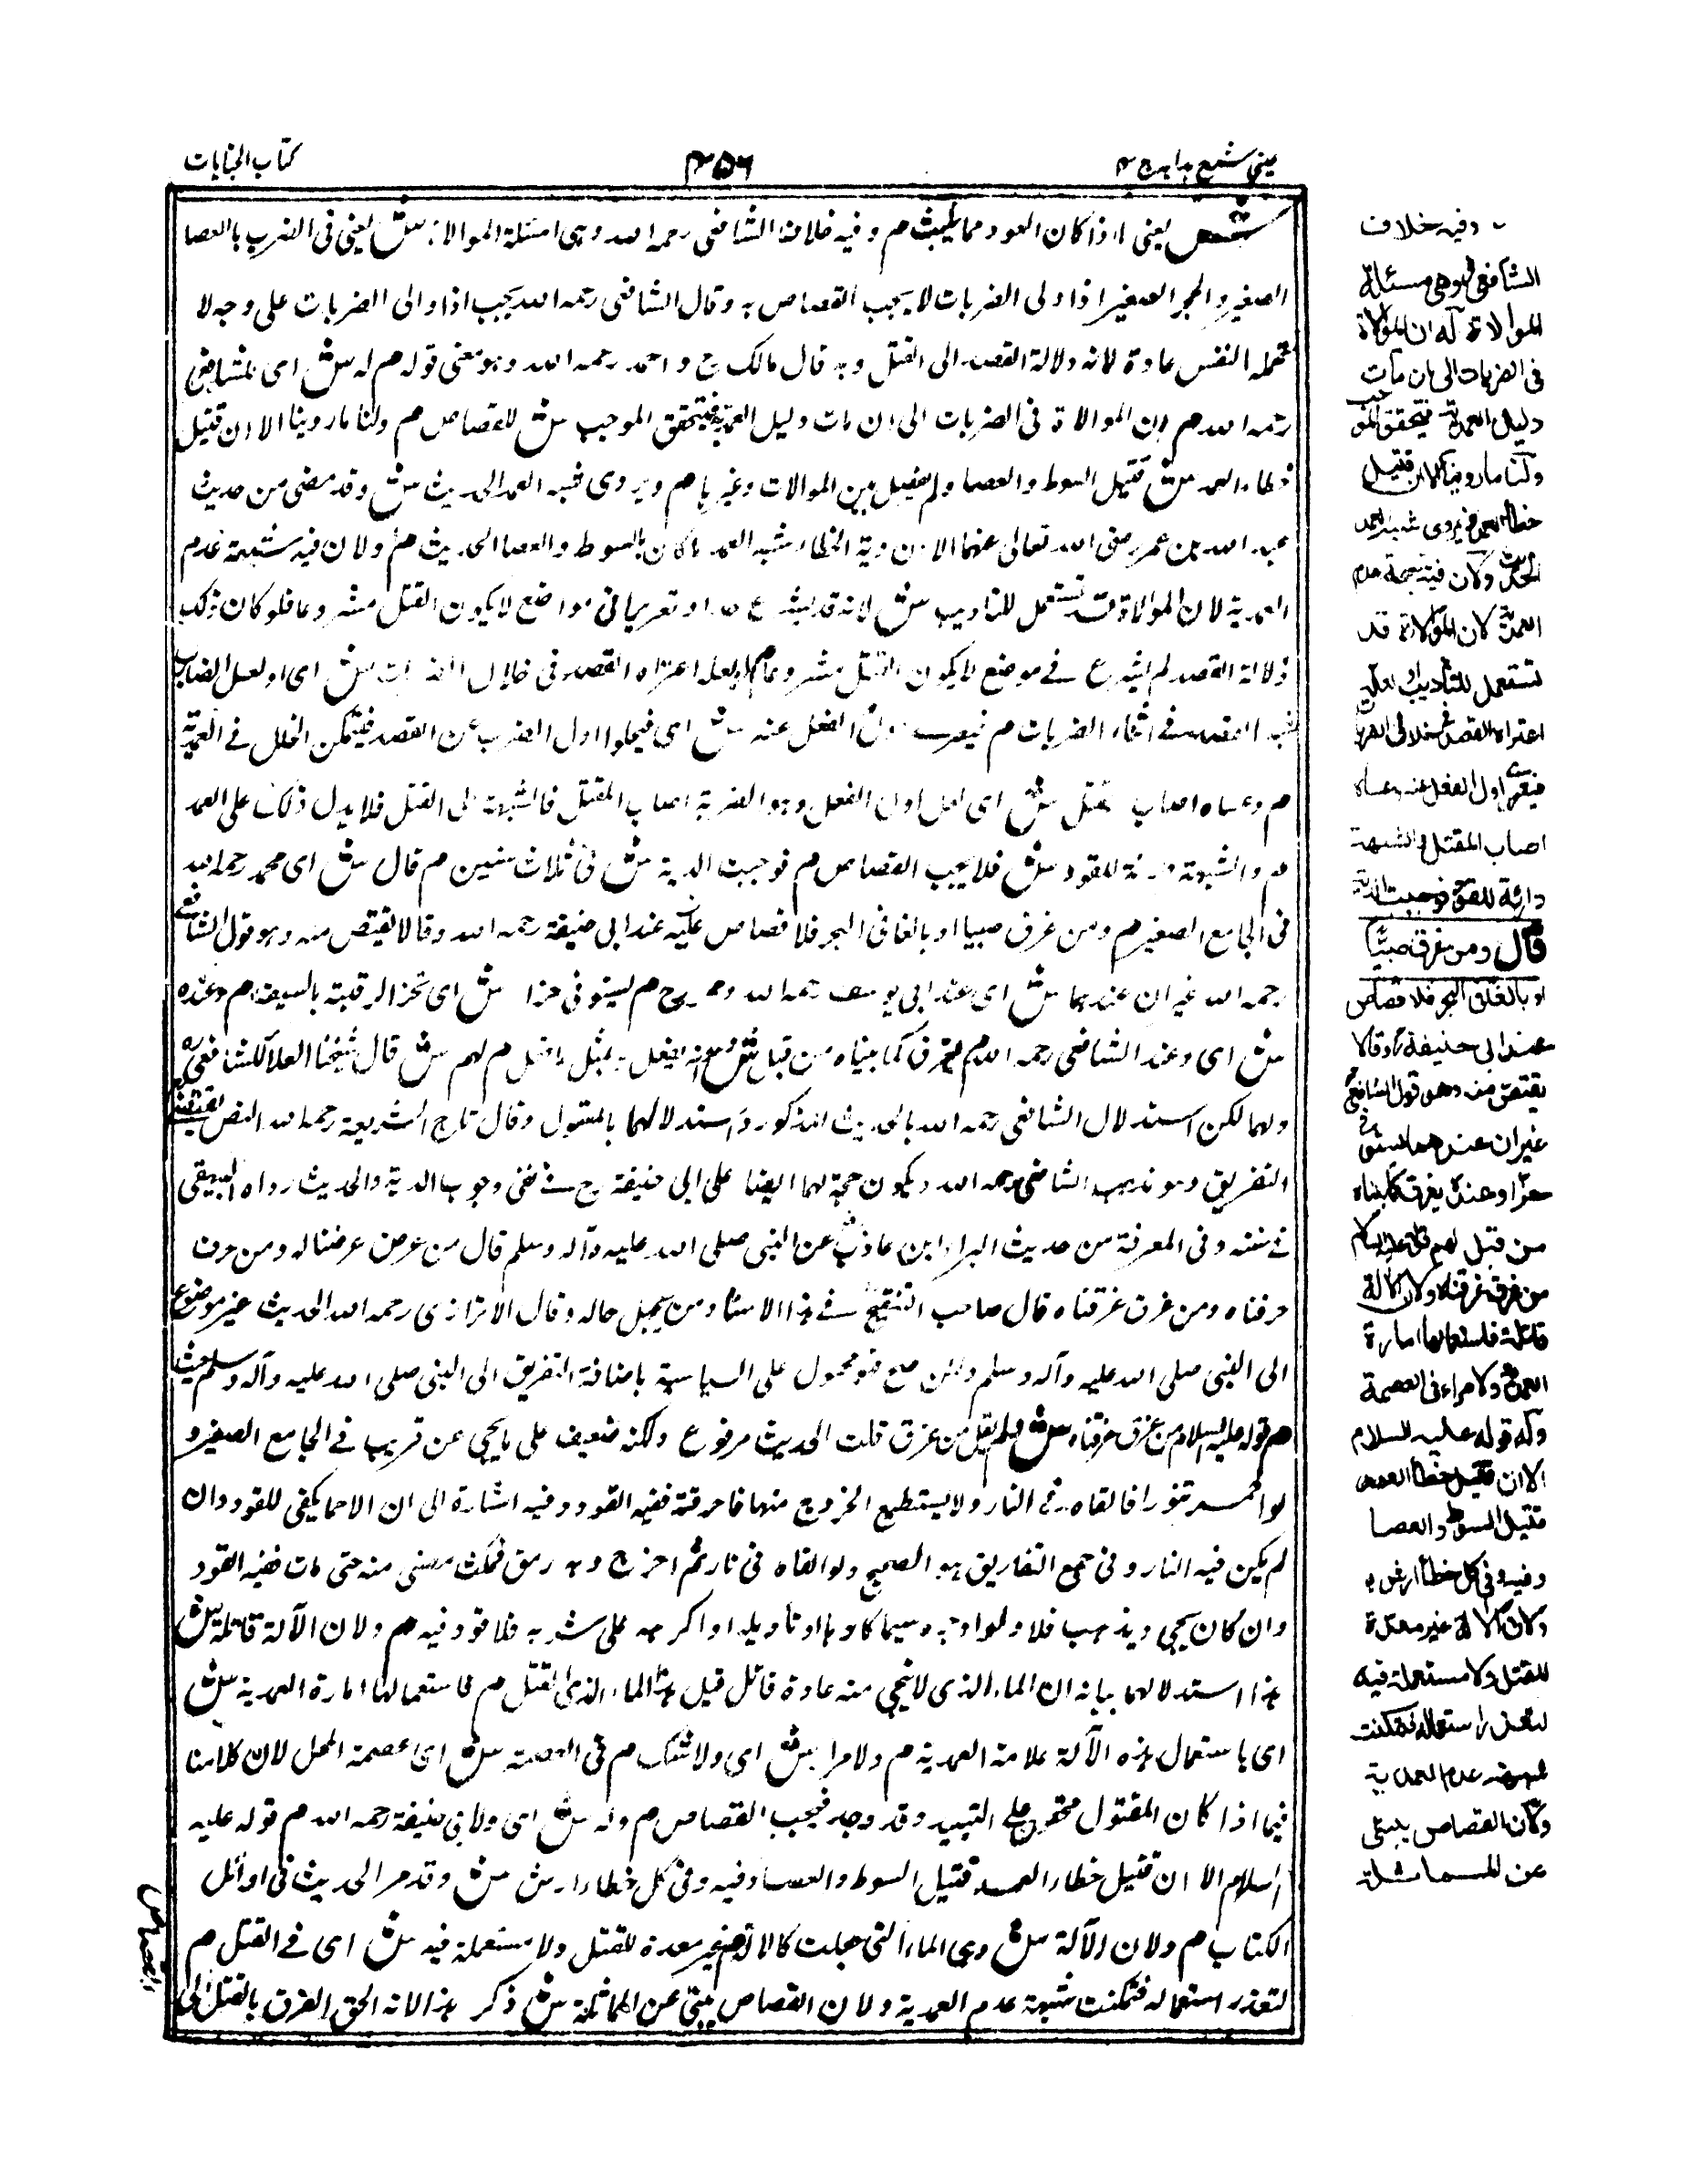 عینی شرح ہدایہ ج ۴
۴۵۶
كتاب الجنايات
ش يعنى اذا كان العود مما يلبث م وفيه خلاف الشافعى رحمه الله وهى مسئلة الموالاة ش يعنى فى الضرب بالعصا
الصغير والحجر الصغير اذا والى الضربات لا يجب القصاص به وقال الشافعى رحمه الله يجب اذا والى الضربات على وجه لا
تحمله النفس عادة لانه دلالة القصد الى القتل وبه قال مالك ح و احمد رحمه الله وهو معنى قوله م له ش اى للشافعى
رحمه الله م ان الموالاة فى الضربات الى ان مات دليل العمدية فيتحقق الموجب ش للقصاص م ولنا ما روينا الا ان قتيل
خطاء العمد ش قتيل السوط والعصا ولم يفصل بين الموالات وغيرها م ويروى شبه العمد الحديث ش وقد مضى من حديث
عبد الله بن عمر رضى الله تعالى عنهما الا ان دية الخطاء شبه العمد ما كان بالسوط والعصا الحديث م ولان فيه شبهة عدم
العمدية لان الموالاة قد تستعمل للتاديب ش لانه قد يشرع حدا وتعزيرا فى مواضع لا يكون القتل مشروعا فلو كان ذلك
دلالة القصد لم يشرع فى موضع لا يكون القتل مشروعا م او لعله اعتراه القصد فى خلال الضربات ش اى او لعل الضارب
القصد فى اثناء الضربات م فيعرى اول الفعل عنه ش اى فيخلوا اول الضرب عن القصد فيتمكن الخلل فى العمدية
م وعساه اصاب المقتل ش اى لعل اول الفعل وهو الضربة اصاب المقتل فالشبهة فى القتل فلا يدل ذلك على العمد
م والشبهة دارئة للقود ش فلا يجب القصاص م فوجبت الدية ش فى ثلاث سنين م قال ش اى محمد رحمه الله
فى الجامع الصغير م ومن غرق صبيا او بالغا فى البحر فلا قصاص عليه عند ابى حنيفة رحمه الله وقالا يقتص منه وهو قول الشافعى
رحمه الله غير ان عندهما ش اى عند ابى يوسف رحمه الله ومحمد ح م يستوفى حزا ش اى تحز الرقبة بالسيف م وعنده
ش اى وعند الشافعى رحمه الله م يغرق كما بيناه من قبل ش انه يفعل به مثل ما فعل م لهم ش قال شيخنا العلا للشافعى ره
ولهما لكن استدلال الشافعى رحمه الله بالحديث المذكور واستدلالهما بالمعقول وقال تاج الشريعة رحمه الله النص يقتضى
التغريق وهو مذهب الشافعى رحمه الله ويكون حجة لهما ايضا على ابى حنيفة ح فى نفى وجوب الدية والحديث رواه البيهقى
فى سننه وفى المعرفة من حديث البراء ابن عاذب عن النبى صلى الله عليه وآله وسلم قال من عرض عرضنا له ومن حرق
حرقناه ومن غرق غرقناه قال صاحب التنقيح فى هذا الاسناد من يجهل حاله وقال الاترازى رحمه الله الحديث غير موضوع
الى النبى صلى الله عليه وآله وسلم ولئن صح فهو محمول على السياسة باضافة التغريق الى النبى صلى الله عليه وآله وسلم حيث
م قوله عليه السلام من غرق غرقناه ش فلم يقل من غرق قلت الحديث مرفوع ولكنه ضعيف على ما يجئ عن قريب فى الجامع الصغير
لو احمى تنورا فالقاه فى النار ولا يستطيع الخروج منها فاحرقته ففيه القود وفيه اشارة الى ان الاحماء يكفى للقود وان
لم يكن فيه النار وفى جمع التفاريق هو الصحيح ولو القاه فى نار ثم اخرج وبه رمق فمكث مضنى منه حتى مات ففيه القود
وان كان يجئ ويذهب فلا ولو اوجره سيما كارها او ناوله او اكرهه على شربه فلا قود فيه م ولان الآلة قاتلة ش
هذا استدلالهما بيانه ان الماء الذى لا ينجى منه عادة قاتل قيل هذا الماء الذى لقتل م فاستعمالها امارة العمدية ش
اى باستعمال هذه الآلة علامة العمدية م ولا مراء ش اى ولا شك م فى العصمة ش اى عصمة المحل لان كلامنا
فيما اذا كان المقتول محقون على التابيد وقد وجد فيجب القصاص م وله ش اى ولابى حنيفة رحمه الله م قوله عليه
السلام الا ان قتيل خطاء العمد قتيل السوط والعصا وفيه وفى كل خطاء ارش ش وقد مر الحديث فى اوائل
الكتاب م ولان الآلة ش وهى الماء التى جعلت كالآلة م غير معدة للقتل ولا مستعملة فيه ش اى فى القتل م
لتعذر استعماله فتمكنت شبهة عدم العمدية ولان القصاص ينبئ عن المماثلة ش ذكر هذا لانه الحق الغرق بالقتل الى
القصاص
وفيه خلاف
الشافعى وهى مسئلة
الموالاة له ان الموالاة
فى الضربات الى ان مات
دليل العمدية فيتحقق الموجب
ولنا ما روينا الا ان قتيل
خطأ العمد ويروى شبه العمد
الحديث ولان فيه شبهة عدم
العمدية لان الموالاة قد
تستعمل للتاديب او لعله
اعتراه القصد فى خلال الضربات
فيعرى اول الفعل عنه وعساه
اصاب المقتل والشبهة
دارئة للقود فوجبت الدية
قال ومن غرق صبيًّا
او بالغا فى البحر فلا قصاص
عند ابى حنيفة رح وقالا
يقتص منه وهو قول الشافعى
غير ان عندهما يستوفى
حزا وعنده يغرق كما بيناه
من قبل لهم قوله عليه السلام
من غرق غرقناه ولان الآلة
قاتلة فاستعمالها امارة
العمدية ولا مراء فى العصمة
وله قوله عليه السلام
الا ان قتيل خطأ العمد
قتيل السوط والعصا
وفيه وفى كل خطأ ارش
ولان الآلة غير معدة
للقتل ولا مستعملة فيه
لتعذر استعماله فتمكنت
شبهة عدم العمدية
ولان القصاص ينبئ
عن المماثلة